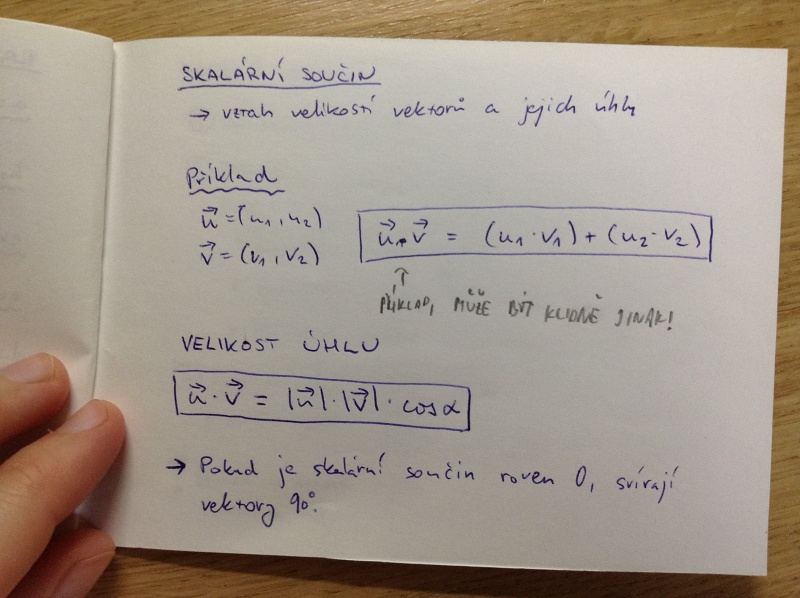 SKALÁRNÍ SOUČIN
→ vztah velikostí vektorů a jejich úhlu
Příklad
u⃗ = (u₁, u₂)
v⃗ = (v₁, v₂)
u⃗ · v⃗ = (u₁ · v₁) + (u₂ · v₂)
PŘÍKLAD, MŮŽE BÝT KLIDNĚ JINAK!
VELIKOST ÚHLU
u⃗ · v⃗ = |u⃗| · |v⃗| · cos α
→ Pokud je skalární součin roven 0, svírají
vektory 90°.